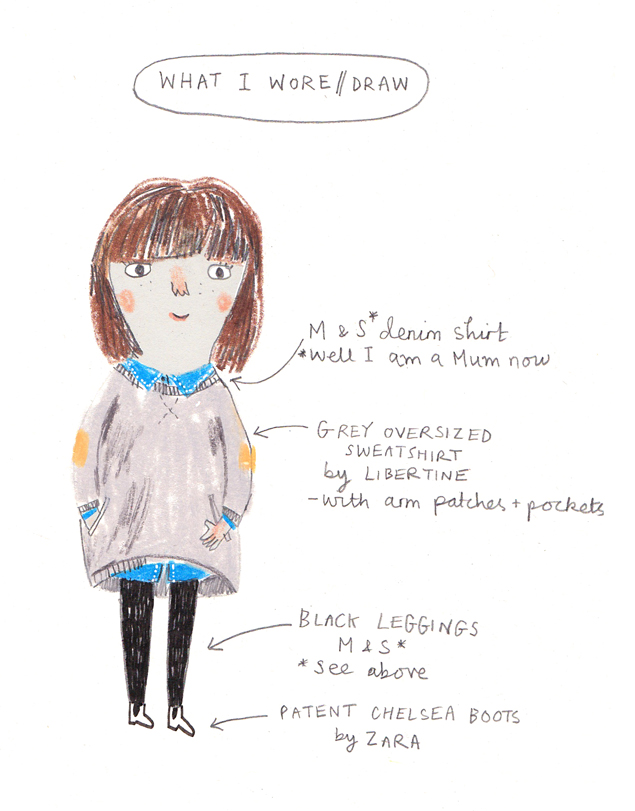 WHAT I WORE//DRAW
M & S* denim shirt
*well I am a Mum now
GREY OVERSIZED
SWEATSHIRT
by LIBERTINE
-with arm patches + pockets
BLACK LEGGINGS
M & S*
*see above
PATENT CHELSEA BOOTS
by ZARA